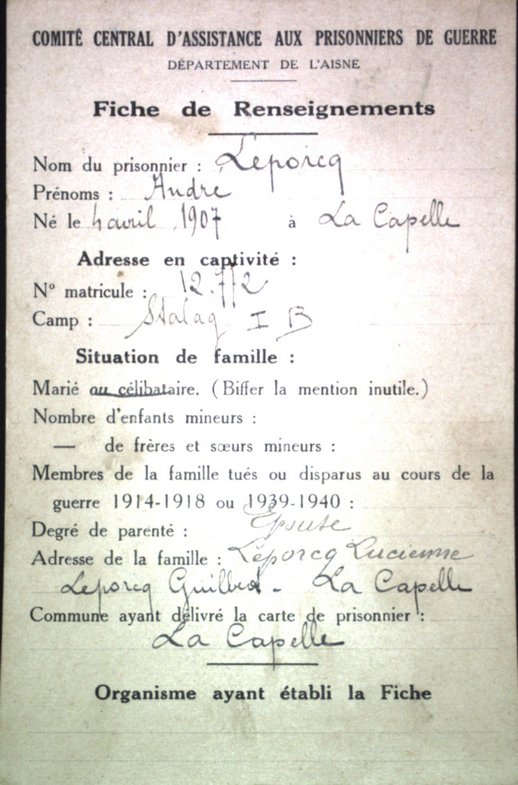 COMITÉ CENTRAL D'ASSISTANCE AUX PRISONNIERS DE GUERRE
DÉPARTEMENT DE L'AISNE
Fiche de Renseignements
Nom du prisonnier : Leporcq
Prénoms : André
Né le 4 avril 1907 à La Capelle
Adresse en captivité :
N° matricule : 12.772
Camp : Stalag I B
Situation de famille :
Marié ou célibataire. (Biffer la mention inutile.)
Nombre d'enfants mineurs :
— de frères et sœurs mineurs :
Membres de la famille tués ou disparus au cours de la
guerre 1914-1918 ou 1939-1940 :
Degré de parenté : Epouse
Adresse de la famille : Leporcq Lucienne
Leporcq - La Capelle
Commune ayant délivré la carte de prisonnier :
La Capelle
Organisme ayant établi la Fiche